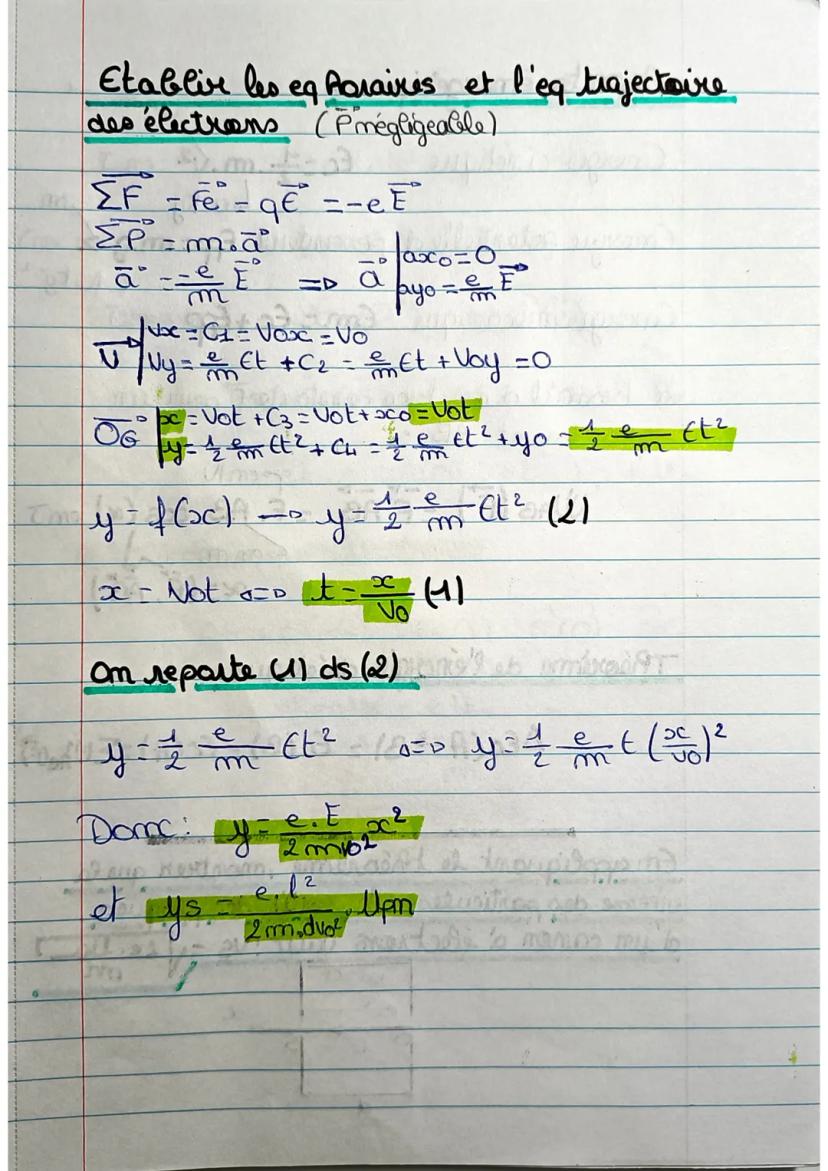 Etablir les eq horaires et l'eq trajectoire
des électrons (P négligeable)
ΣF = Fe = qE = -eE
ΣP = m.a
a = -e/m E => a | ax0 = 0
ay0 = e/m E
V | Vx = C1 = V0x = V0
Vy = e/m Et + C2 = e/m Et + V0y = 0
OG | x = V0t + C3 = V0t + x0 = V0t
y = 1/2 e/m Et² + C4 = 1/2 e/m Et² + y0 = 1/2 e/m Et²
y = f(x) → y = 1/2 e/m Et² (2)
x = V0t <=> t = x/V0 (1)
On reporte (1) ds (2)
y = 1/2 e/m Et² <=> y = 1/2 e/m E (x/V0)²
Donc: y = e.E/2mv0² x²
et ys = e.l²/2m.dv0² . Upm